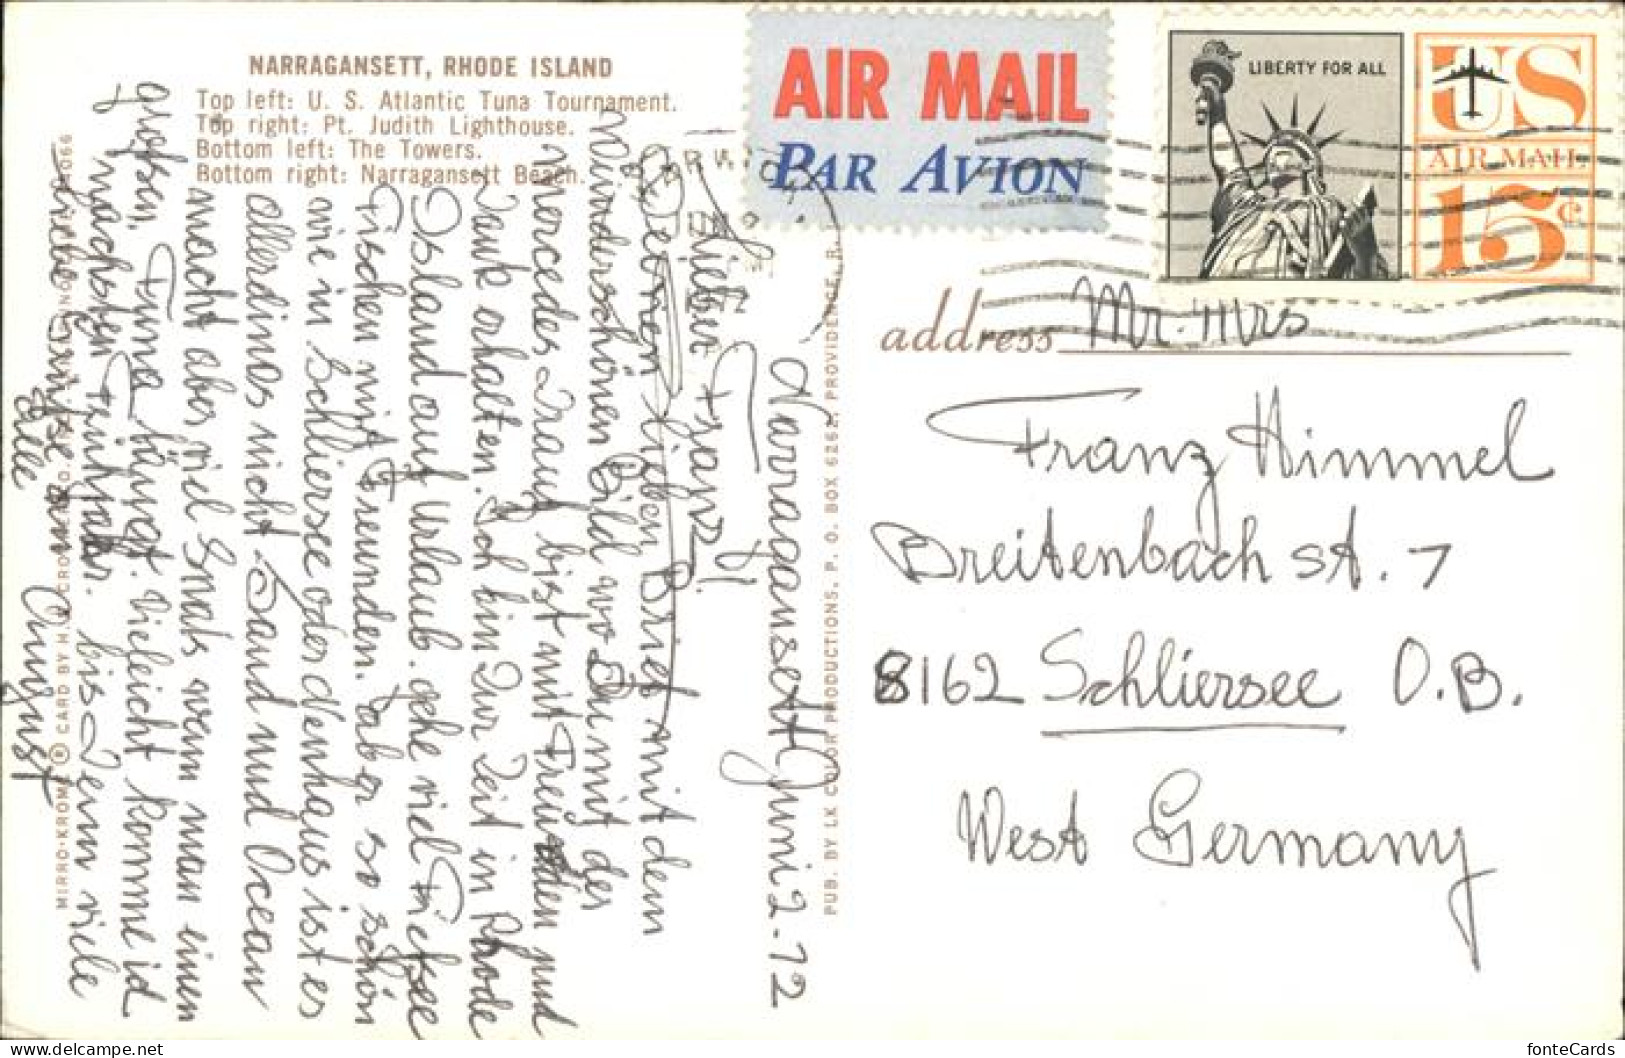 NARRAGANSETT, RHODE ISLAND
Top left: U. S. Atlantic Tuna Tournament.
Top right: Pt. Judith Lighthouse.
Bottom left: The Towers.
Bottom right: Narragansett Beach.
AIR MAIL
PAR AVION
LIBERTY FOR ALL
US
AIR MAIL
15¢
Narragansett Juni 2. 72
Lieber Franz
Deinen lieben Brief mit dem
Wunderschönen Bild wo Du mit der
Mercedes Traut bist mit Freuden und
Dank erhalten. Ich bin Zur Zeit in Rhode
Island auf Urlaub. gehe viel Tiefsee
Fischen mit Freunden. aber so schön
wie in Schliersee oder Nenhaus ist es
allerdings nicht. Sand und Ocean
macht aber viel Spas wenn man einen
grofsen Tuna fängt. Vieleicht komme id
nächsten Frühjahr. bis Denn viele
liebe Grüfse an
Alle
August
address
Mr. Mrs
Franz Himmel
Breitenbach st. 7
8162 Schliersee O.B.
West Germany
PUB. BY LK COLOR PRODUCTIONS, P. O. BOX 6262, PROVIDENCE, R. I.
MIRRO-KROME ® CARD BY H. S. CROCKER CO.
fonteCards